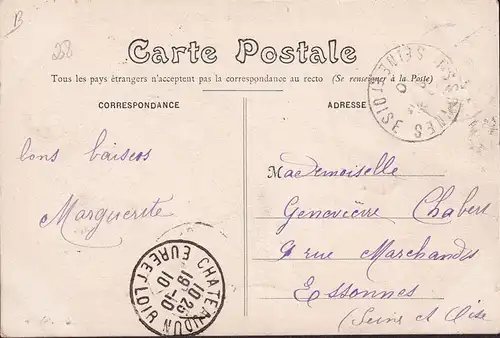 B
28
Carte Postale
Tous les pays étrangers n'acceptent pas la correspondance au recto (Se renseigner à la Poste)
CORRESPONDANCE
ADRESSE
ESSONNES
SEINE ET OISE
bons baisers
Marguerite
Mademoiselle
Geneviève Chabert
9 rue Marchands
Essonnes
(Seine et Oise
CHATEAUDUN
10 25
19-10
10
EURE ET LOIR